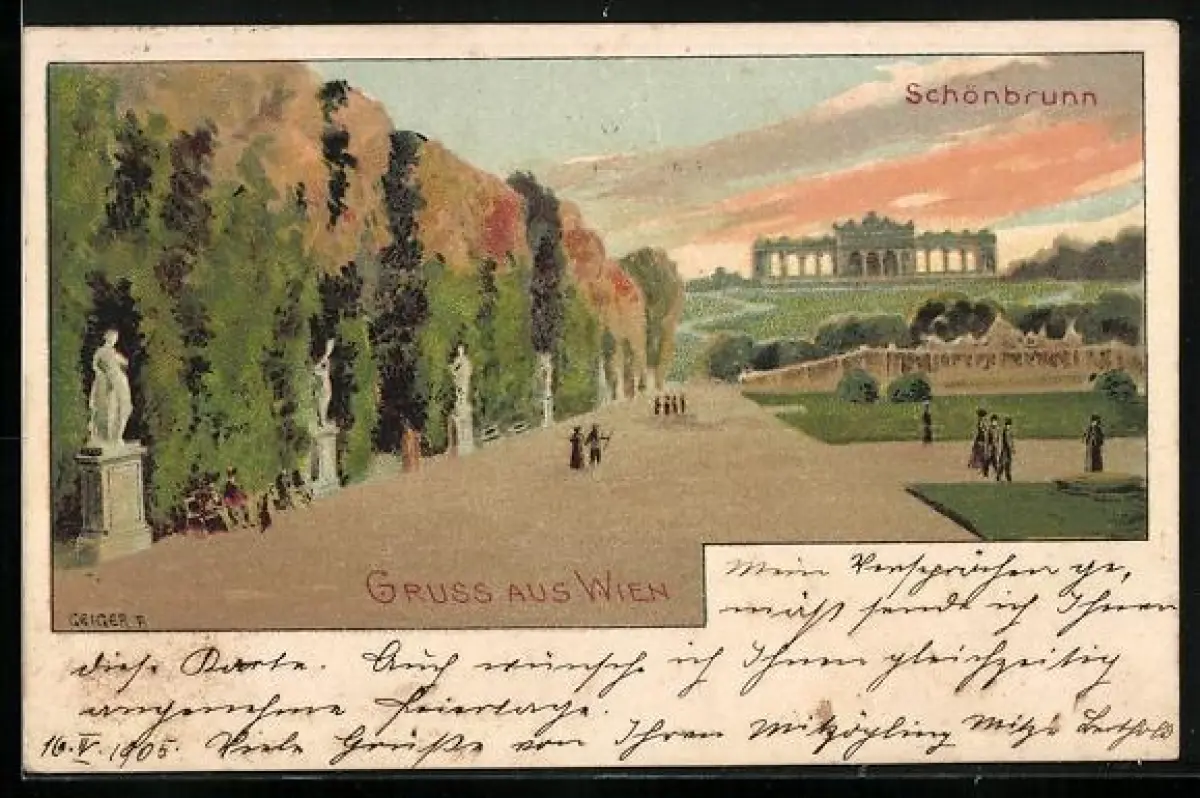 Schönbrunn
GRUSS AUS WIEN
GEIGER R.
Mein Versprächen ge,
mäß sende ich Ihnen
diese Karte. Auch wünsche ich Ihnen gleichzeitig
angenehme Feiertage.
16. V. 1905. Viele Grüße von Ihrem Mitzögling Mitzi